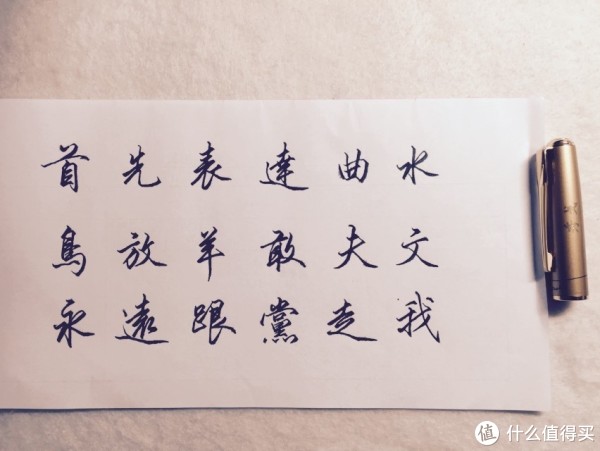 首先表達曲水
鳥放羊敢夫文
永遠跟黨走我
值 什么值得买